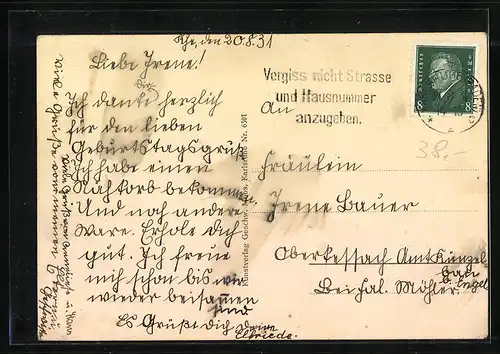 Khe, den 20.8.31
Liebe Irene!
Ich danke dir herzlich
für den lieben
Geburtstagsgruß.
Ich habe einen
Nähkorb bekommen.
Und noch andere
Ware. Erhole Dich
gut. Ich freue
mich schon bis wir
wieder beisammen
sind
Es Grüßt Dich deine
Elfriede.
viele Grüße von meinen
Vergiss nicht Strasse
und Hausnummer
anzugeben.
Kunstverlag Gebr. Karlsruhe Nr. 6591
An
Fräulein
Irene Bauer
Oberkessach Amt Künzel
bei Fal. Möhler
8 8
38.-